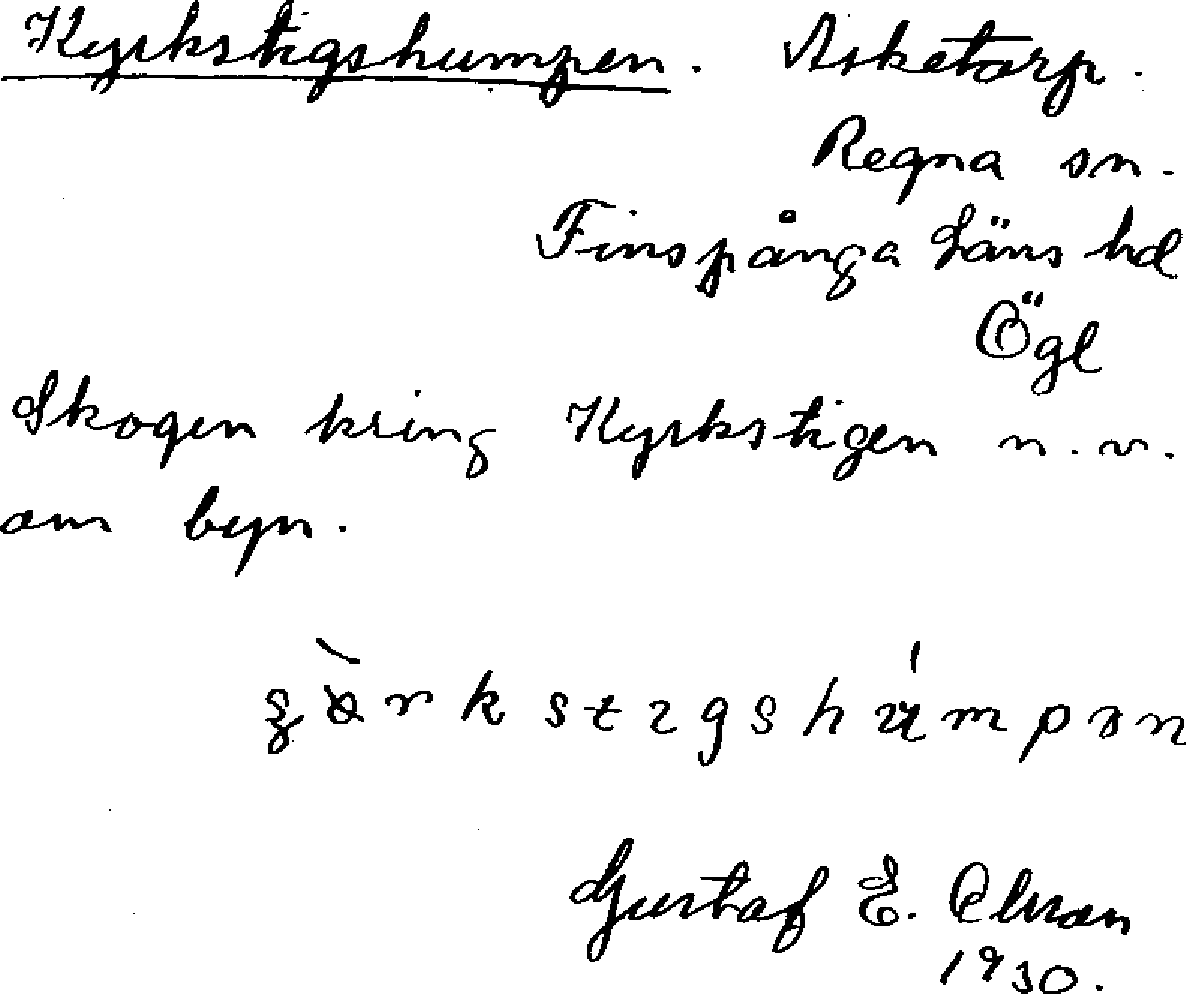 Kyrkstigshumpen. Asketorp.
Regna sn.
Finspånga läns hd
Ögl
Skogen kring Kyrkstigen n.v.
om byn.
Gustaf E. Olsson
1930.